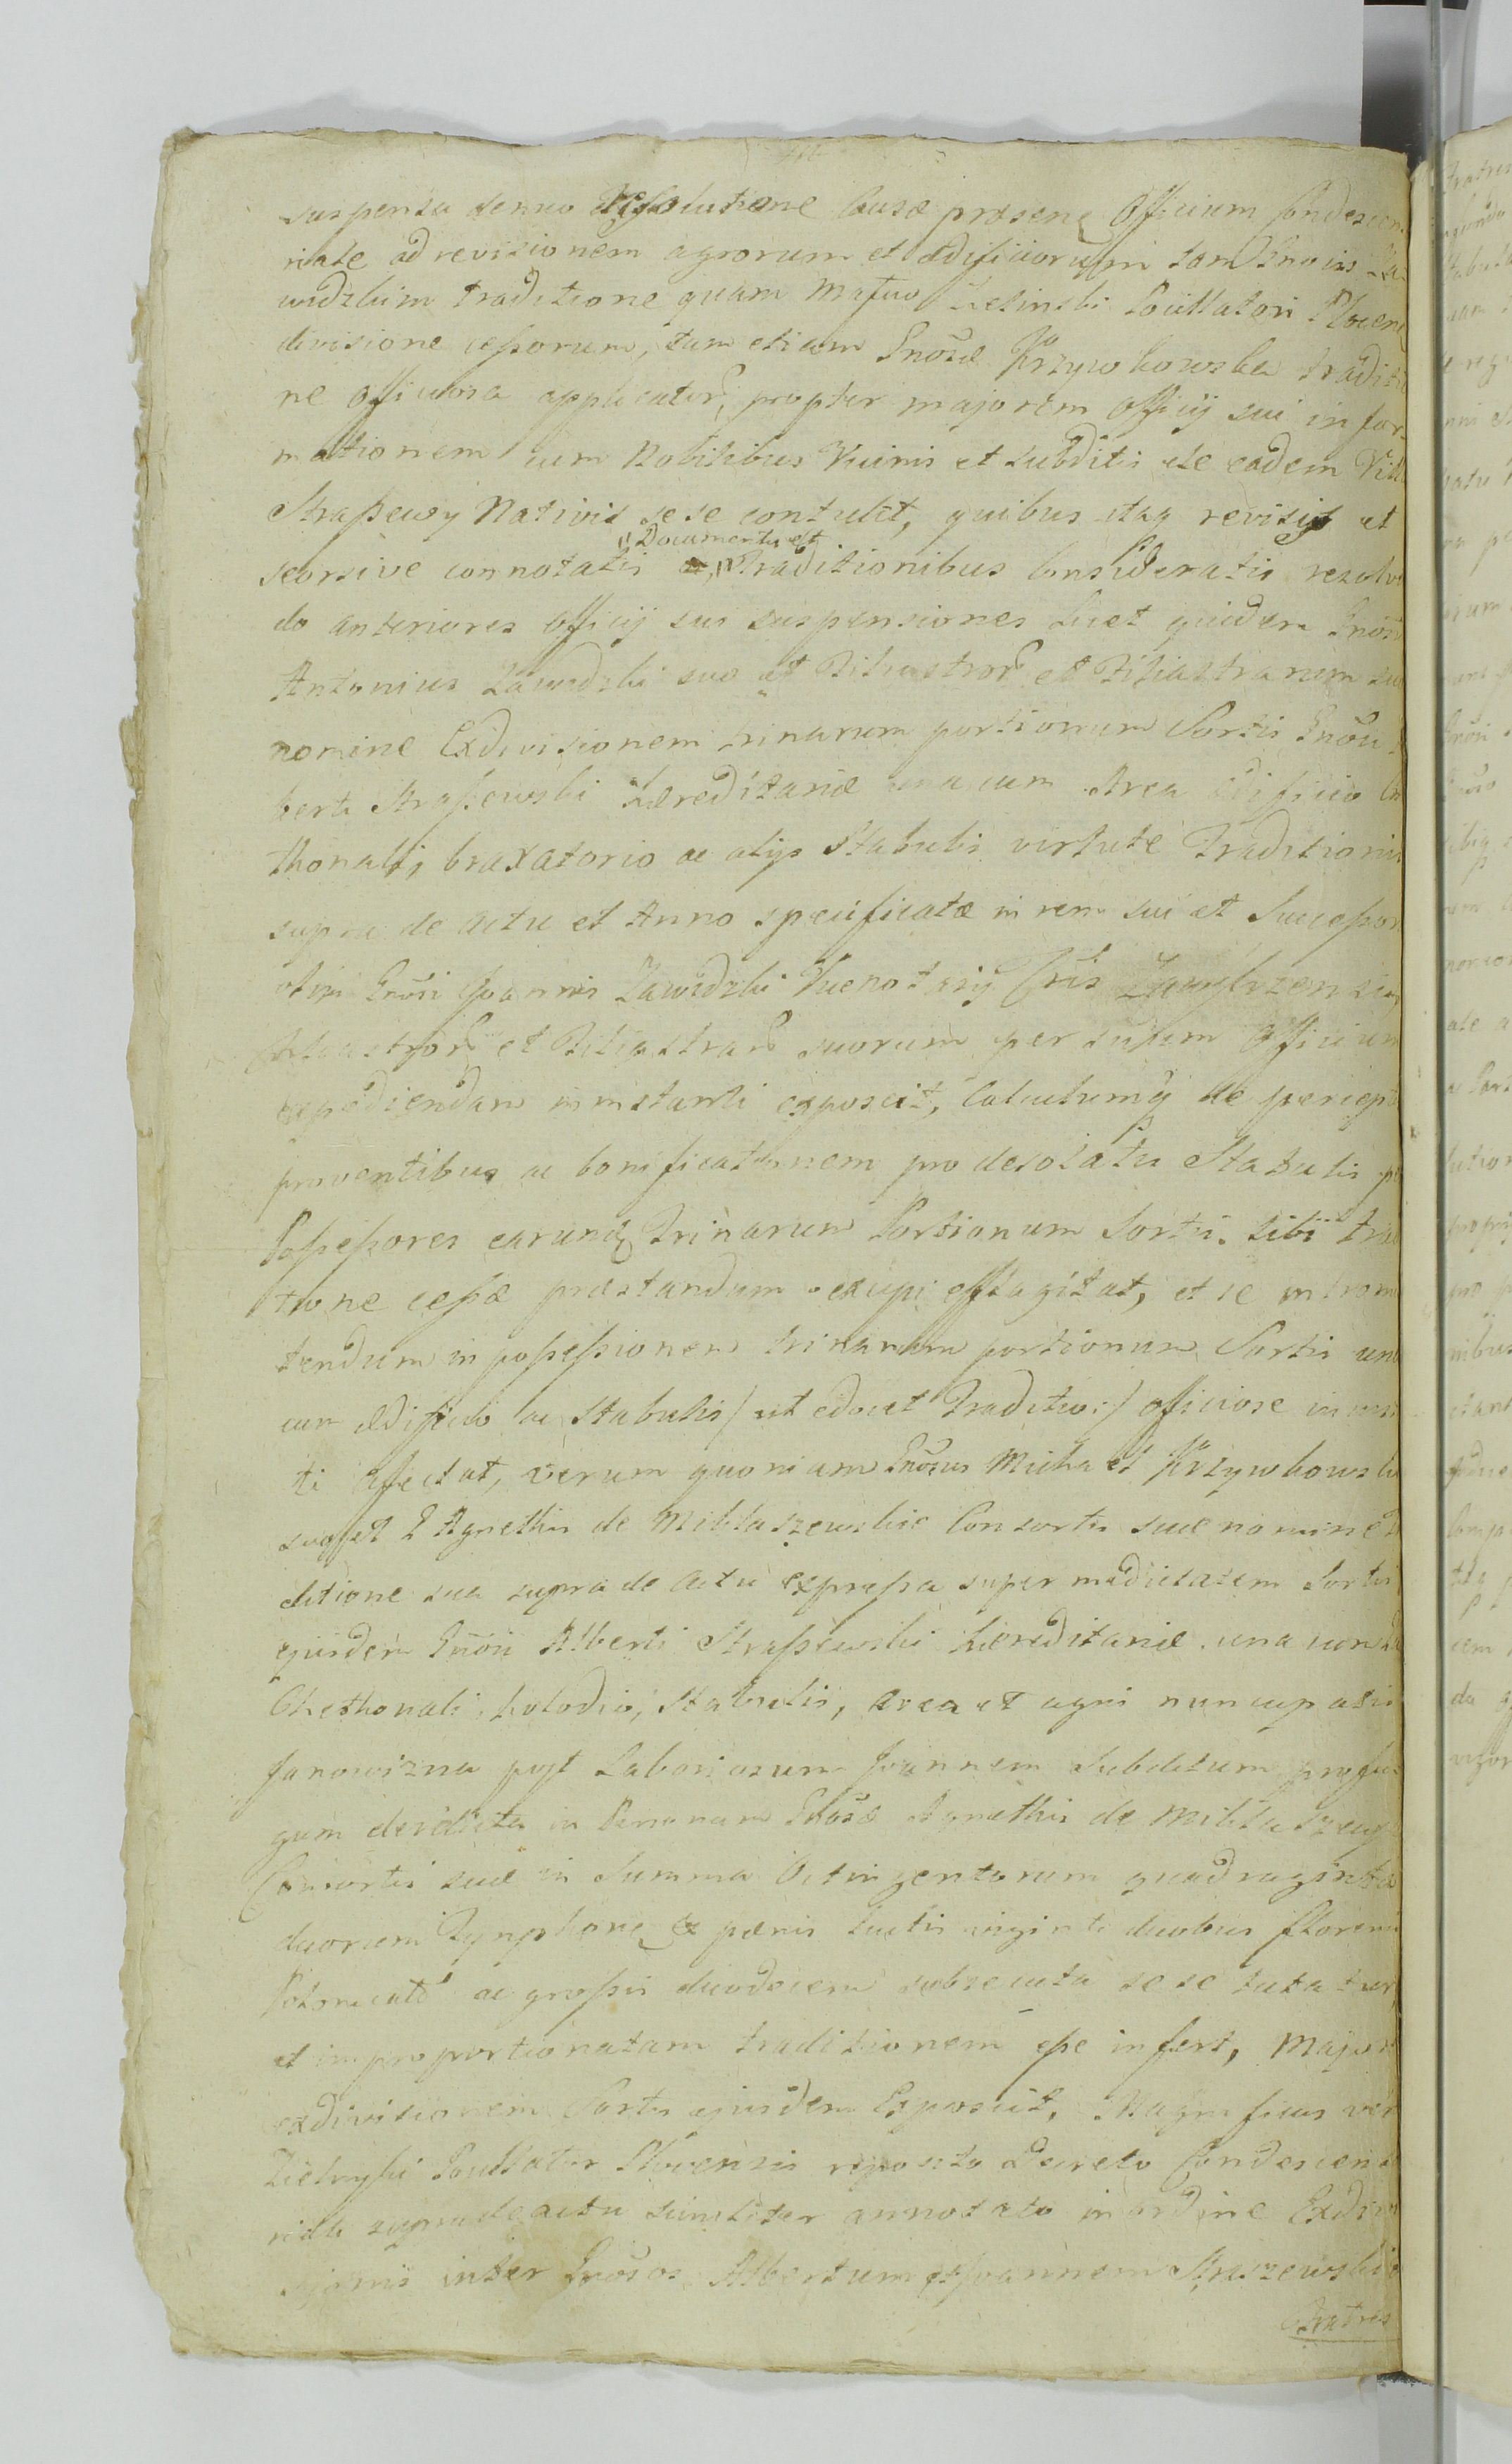 suspensa denuo Resolutione Causæ præsens Officium Condescen
riale ad revisionem agrorum et ædificiorum tam Gnosis Za
widzkim traditione quam Mafico Zielinski Pocillatori Plocen
divisione cessorum, tam etiam Gnosæ Krzywkowska traditio
ne officiosa applicator, propter majorem Officij sui infor
mationem cum Nobilibus Vicinis et subditis de eadem Villa
Strassewy Nativis sese contulit, quibus itaq revisis et
seorsive connotatis Documentis et Traditionibus Consideratis resolven
do anteriores officij sui suspensiones Licet quidem Gnosus
Antonius Zawidzki suo et Filiastror et Filiastrarum suo
nomine Exdivisionem trinarum portionum Sortis Gnosi
berti Strassewski Hæreditariæ una cum Area ædificio Che
thonalj, braxatorio ac alijs Stabulis virtute Traditionis
supra de actu et Anno specificatæ in rem sui et Successor
olim Gnosi Joannis Zawidzki Vicenotarij Cstris Zawskrzensis
Filiastror et Filiastrar suorum per suum Officium
expediendam in instanti exposcit, Calculumq de perceptis
proventibus ac bonificationem pro desolatis Stabulis per
Possessores earundem Trinarum Portionum Sortis sibi tradi
tione cessæ præstandum excipi efflagitat, et se intromit
tendum in possessionem trinarum portionum Sortis una
cum ædificio ac Stabulis /ut edocet Traditio:/ officiose in
ti afectat, verum quoniam Gnosus Michael Krzywkowski
suo et G Agnethis de Miklaszewskie Consortis suæ nomine
ditione sua supra de actu expressa super medietatem Sortis
ejusdem Gnosi Alberti Strassewski hæreditariæ una cum
Chethonali, holodio, Stabulis, area et agris nuncupatis
Janowizna post Laboriosum Joannem Subditum profu
gum derelicta in Personam Gnosæ Agnethis de Miklaszew
Consortis suæ in Summa Octingentorum quadraginta
duorum Tynphone et pænis luitis viginti duobus florenis
Polonicalb ac grossis duodecem subsecuta sese tutatur
et improportionatam traditionem esse infert, Major
exdivisionem Sortis ejusdem Exposcit, Magnificus vero
Zielinski Pocillator Plocensis reposito Decreto Condescen
riali supra de actu similiter annotato in ordine Exdivi
sionis inter Gnosos Albertum et Joannem Straszewskie
Fratres